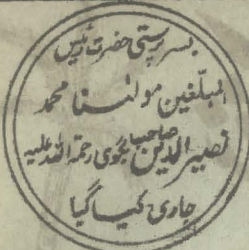 بسرپرستی حضرت رئیس
المبلغین مولٰنا محمد
نصیر الدین صاحب بگوی رحمۃ اللہ علیہ
جاری کیا گیا